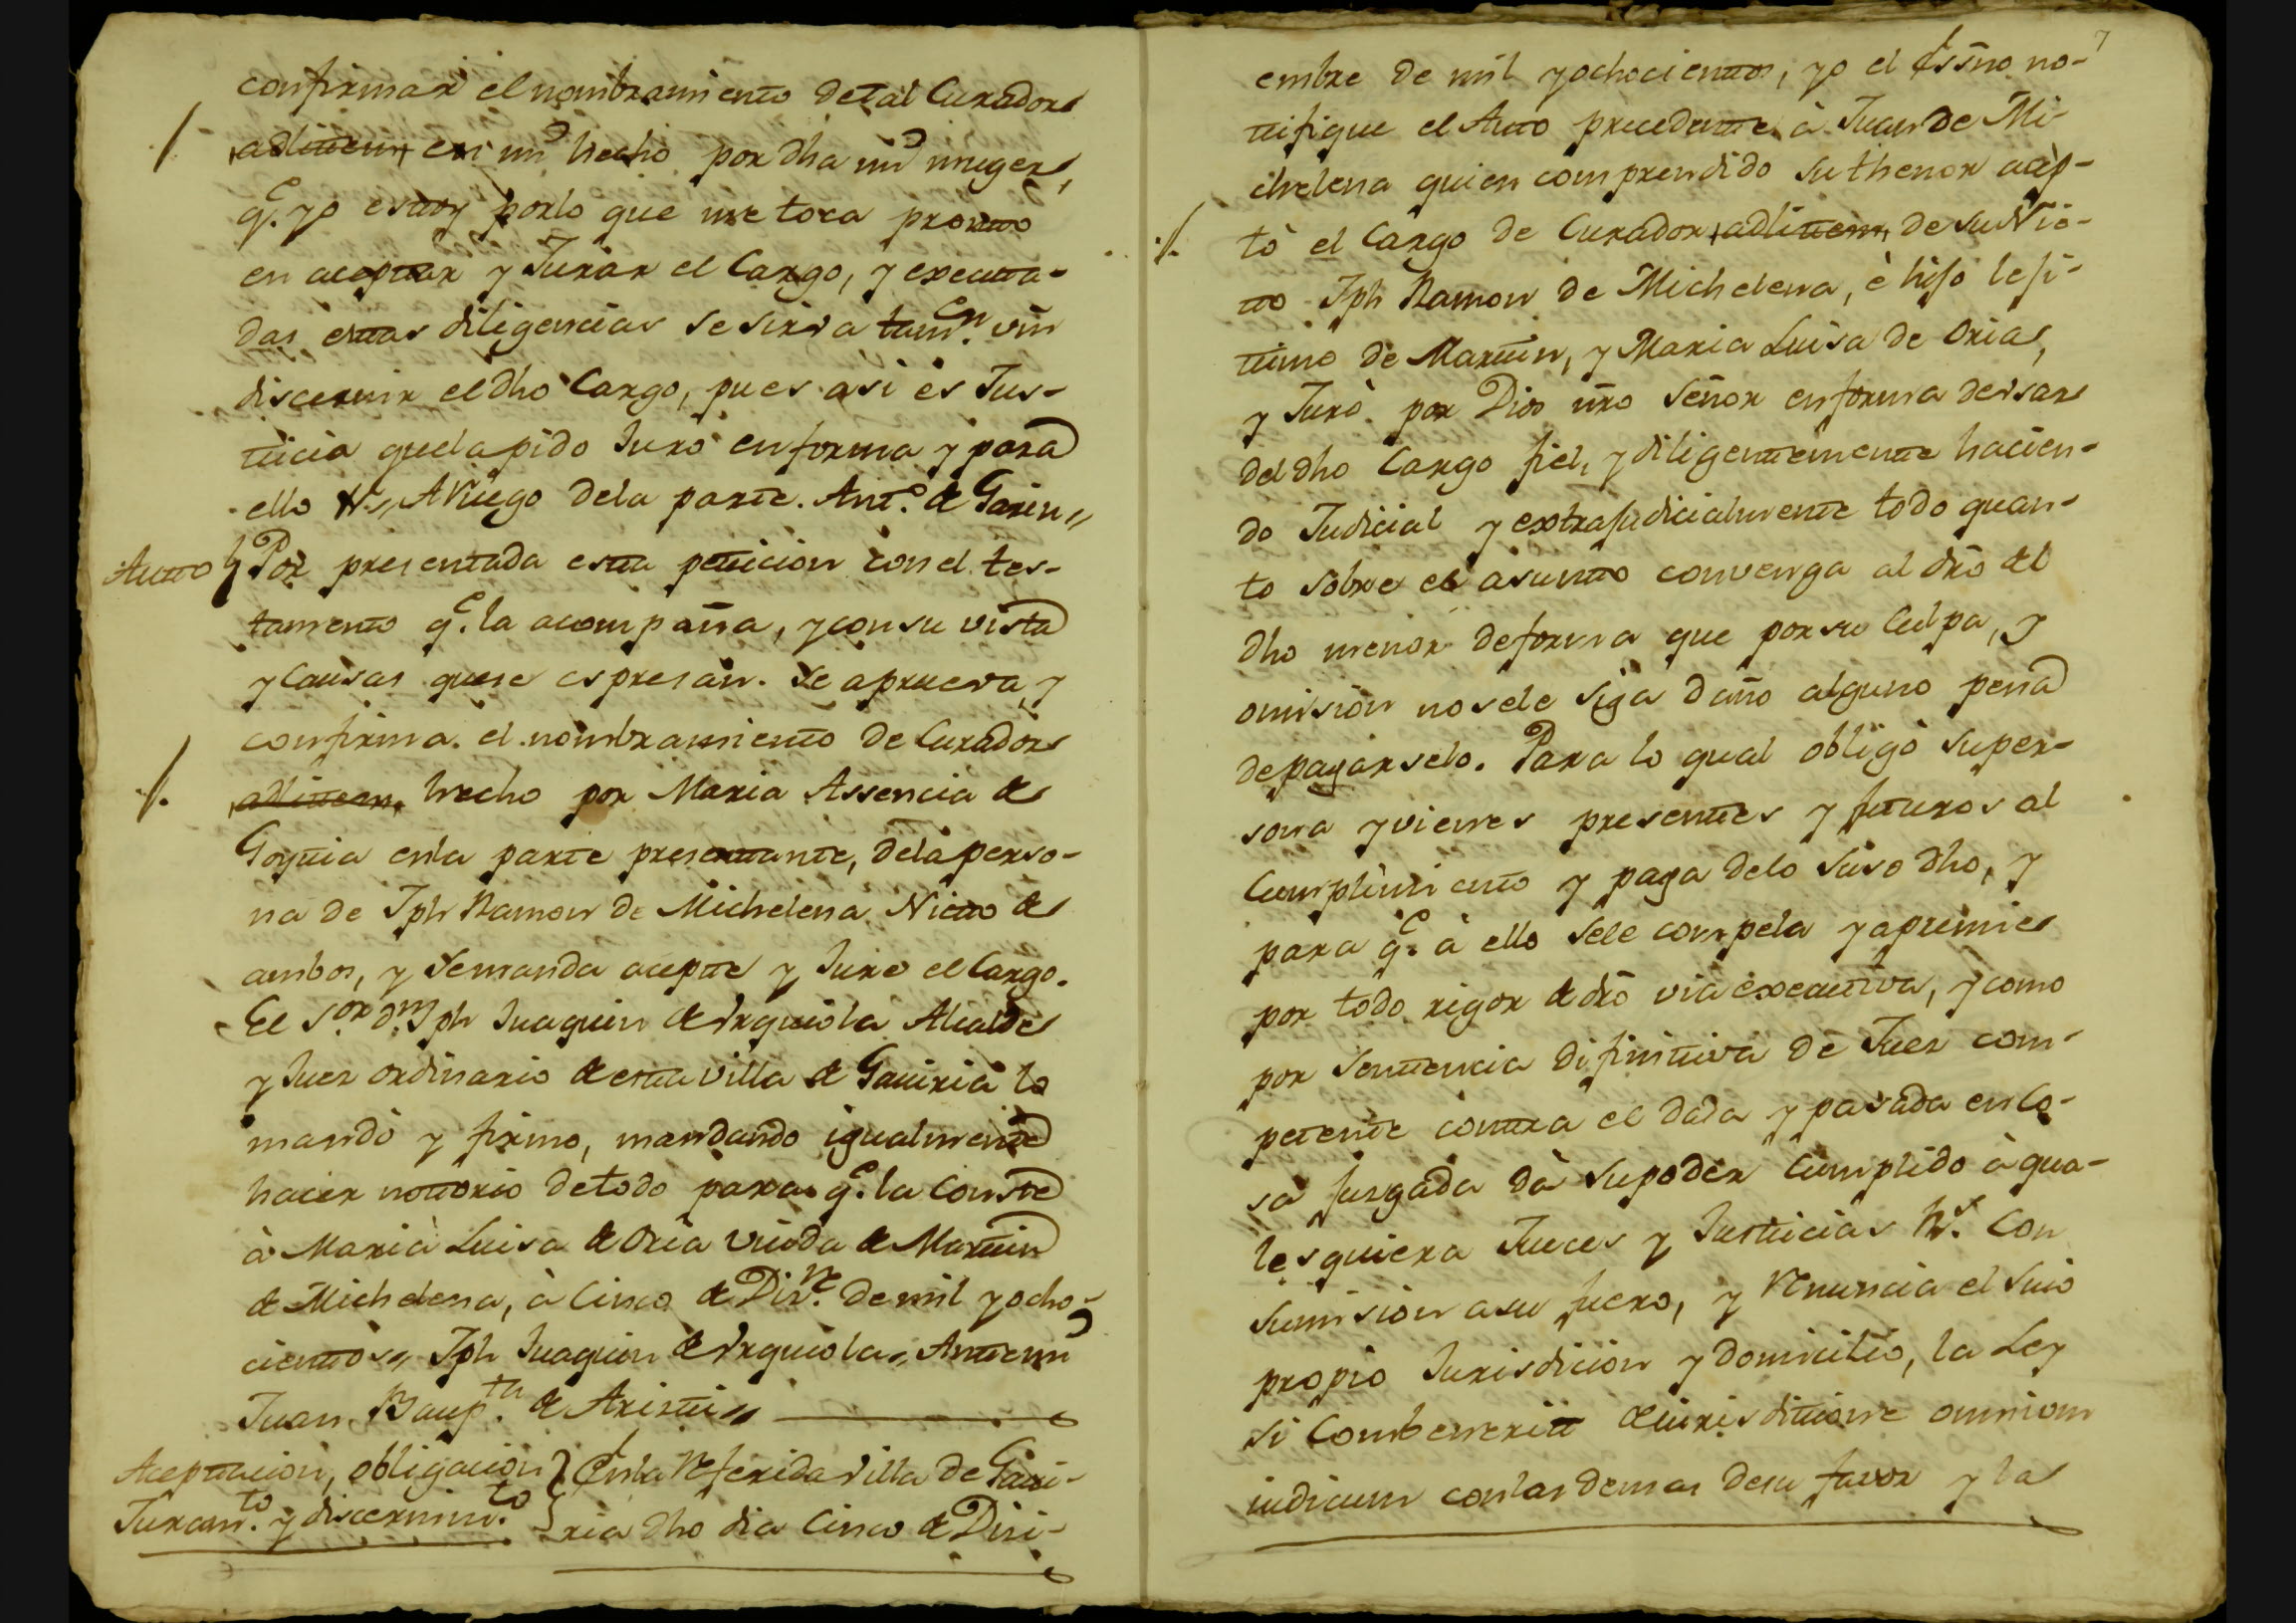 confirmar el nombramiento de tal Curador
adlitem en mi hecho por dha mi muger,
q.e yo estoy por lo que me toca pronto
en aceptar y Jurar el Cargo, y executa-
das estas diligencias se sirva tamn. vm
discernir el dho Cargo, pues asi es Jus-
ticia que la pido Juro en forma y para
ello &.a A Ruego dela parte. Ant.o de Garin
Auto Por presentada esta peticion con el tes-
tamento q.e la acompaña, y con su vista
y Causas que se espresan. Se aprueva, y
confirma. el nombramiento de Curador
adlitem, hecho por Maria Assencia de
Goytia en la parte presentante, dela perso-
na de Jph Ramon de Michelena Nieto de
ambos, y Se manda acepte y Jure el Cargo.
El S.or D.n Jph Juaquin de Vrquiola Alcalde
y Juez ordinario de esta Villa de Gaviria lo
mandò y firmo, mandando igualmente
hacer notorio de todo para q.e la Conste
à Maria Luisa de Oria viuda de Martin
de Michelena, à Cinco de Diz.re de mil y ocho-
cientos Jph Juaquin de Vrquiola Antemi
Juan Baup.ta de Aristi
Aceptacion, obligacion En la Referida Villa de Gavi-
Juram.to y discernim.to ria dho dia Cinco de Dizi-
7
embre de mil y ochocientos, yo el Essno no-
tifique el Auto precedente à Juan de Mi-
chelena quien comprendido su thenor acep-
tò el Cargo de Curador adlitem, de su Nie-
to Jph Ramon de Michelena, è hijo leji-
timo de Martin, y Maria Luisa de Oria,
y Jurò por Dios ñro Señor en forma de usar
del dho Cargo fiel, y diligentemente hacien-
do Judicial y extrajudicialmente todo quan-
to sobre el asunto convenga al dro del
dho menor de forma que por su Culpa, y
omision no sele siga daño alguno pena
de pagarselo. Para lo qual obligò su per-
sona y vienes presentes y futuros al
Cumplimiento y paga delo Suso dho, y
para q.e à ello Sele compela y apremie
por todo rigor de dro via executiva, y como
por Sentencia difinitiva de Juez com-
petente contra el dada y pasada en Co-
sa juzgada dà su poder Cumplido à qua-
lesquiera Jueces y Justicias Rs. Con
Sumision a su fuero, y Renuncia el Suio
propio Jurisdicion y domicilio, la Ley
si Combenerit de iurisditione omnium
iudicum con las demas de su favor y la